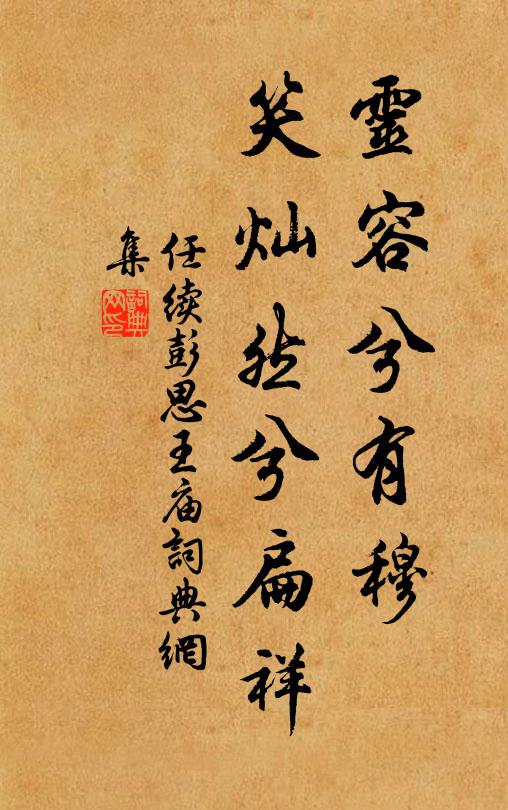 靈容兮有穆
笑灿然兮扁祥
任续彭思王庙詞典網
集
詞典網印